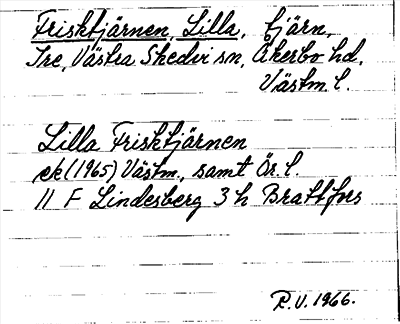 Frisktjärnen, Lilla, tjärn,
Tre, Västra Skedvi sn, Åkerbo hd,
Västm. l.
Lilla Frisktjärnen
ek (1965) Västm., samt Ör. l.
11 F Lindesberg 3 h Brattfors
R.V. 1966.